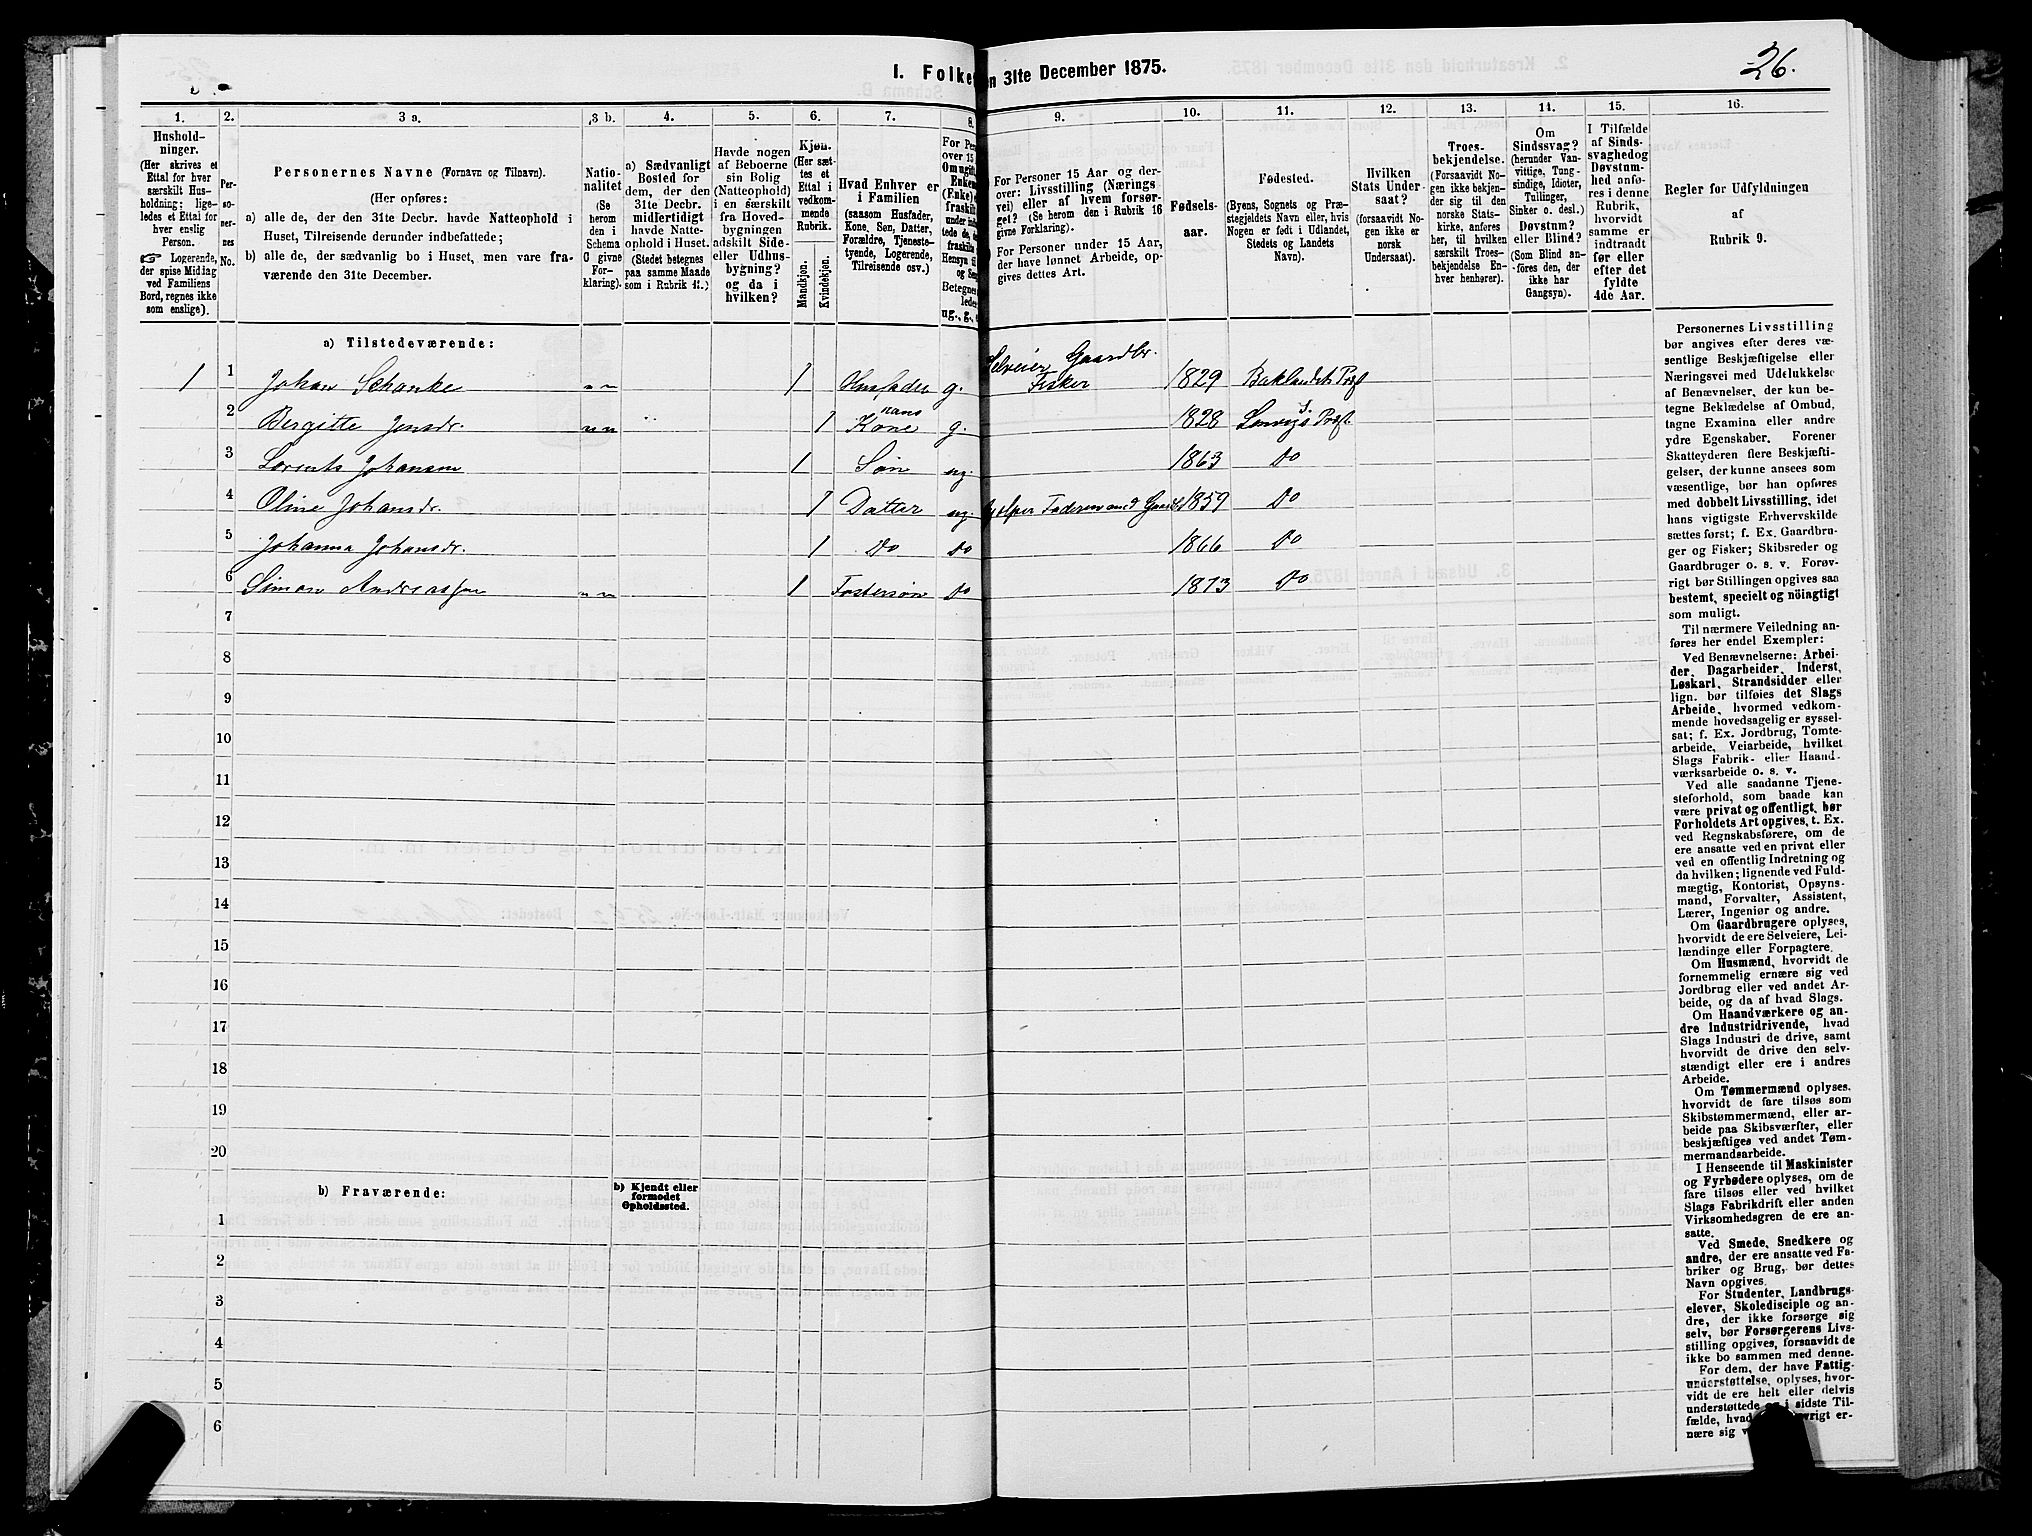 I. Folke
en 31te December 1875.
26.
1.
2.
3 a.
3 b.
4.
5.
6.
7.
8.
9.
10.
11.
12.
13.
14.
15.
16.
Hushold-
ninger.
(Her skrives et
Ettal for hver
særskilt Hus-
holdning; lige-
ledes et Ettal for
hver enslig
Person.
☞ Logerende,
der spise Middag
ved Familiens
Bord, regnes ikke
som enslige).
Per-
so-
ner-
nes
No.
Personernes Navne (Fornavn og Tilnavn).
(Her opføres:
a) alle de, der den 31te Decbr. havde Natteophold i
Huset, Tilreisende derunder indbefattede;
b) alle de, der sædvanlig bo i Huset, men vare fra-
værende den 31te December.
Natio-
nalitet
(Se
herom
den i
Schema
C givne
For-
klaring).
a) Sædvanligt
Bosted for
dem, der den
31te Decbr.
midlertidigt
havde Natte-
ophold i Huset.
(Stedet betegnes
paa samme Maade
som i Rubrik 11.)
Havde nogen
af Beboerne
sin Bolig
(Natteophold)
i en særskilt
fra Hoved-
bygningen
adskilt Side-
eller Udhus-
bygning?
og da i
hvilken?
Kjøn.
(Her sæt-
tes et
Ettal i
vedkom-
mende
Rubrik.
Mandkjøn.
Kvindekjøn.
Hvad Enhver er
i Familien
(saasom Husfader,
Kone, Søn, Datter,
Forældre, Tjeneste-
tyende, Logerende,
Tilreisende osv.)
For Pers
over 15
Om ugift,
Enkem
(Enke) e
fraskilt
under indbe
tede de, der
fraskilte
Hensyn til
og Sen
Betegnes
ledes
ug., g., e
For Personer 15 Aar og der-
over: Livsstilling (Nærings-
vei) eller af hvem forsør-
get? (Se herom den i Rubrik 16
givne Forklaring).
For Personer under 15 Aar,
der have lønnet Arbeide, op-
gives dettes Art.
Fødsels-
aar.
Fødested.
(Byens, Sognets og Præ-
stegjeldets Navn eller, hvis
Nogen er født i Udlandet,
Stedets og Landets
Navn).
Hvilken
Stats Under-
saat?
(forsaavidt No-
gen ikke er
norsk
Undersaat).
Troes-
bekjendelse.
(Forsaavidt No-
gen ikke bekjen-
der sig til den
norske Stats-
kirke, anføres
her, til hvilken
særskilt Troes-
bekjendelse En-
hver henhører).
Om
Sindssvag?
(herunder Van-
vittige, Tung-
sindige, Idioter,
Tullinger,
Sinker o. desl.)
Døvstum?
eller Blind?
(Som Blind an-
føres den, der
ikke har
Gangsyn).
I Tilfælde
af Sinds-
svaghed og
Døvstum-
hed anfø-
res i denne
Rubrik,
hvorvidt
samme er
indtraadt
før eller
efter det
fyldte
4de Aar.
Regler for Udfyldningen
af
Rubrik 9.
a) Tilstedeværende:
1 1 Johan Schanke „ „ 1 Husfader g. Selveier Gaardbr. Fisker 1829 Baklandets Prgf
2 Birgitte Jensdr. „ „ 1 hans Kone g. 1828 Lenvigs Prgf.
3 Lorents Johansen 1 Søn ug. 1863 Do
4 Oline Johansdr. 1 Datter ug. hjelper Faderen med Gaardsbr 1859 Do
5 Johanna Johansdr. 1 Do Do 1866 Do
6 Simon Andreassen „ „ 1 Fostersøn Do 1873 Do
7
8
9
10
11
12
13
14
15
16
17
18
19
20
b) Fraværende:
b) Kjendt eller
formodet
Opholdssted.
1
2
3
4
5
6
Personernes Livsstilling
bør angives efter deres væ-
sentlige Beskjæftigelse eller
Næringsvei med Udelukkelse
af Benævnelser, der kun be-
tegne Beklædelse af Ombud,
tagne Examina eller andre
ydre Egenskaber. Forener
Skatteyderen flere Beskjæfti-
gelser, der kunne ansees som
væsentlige, bør han opføres
med dobbelt Livsstilling, idet
hans vigtigste Erhvervskilde
sættes først; f. Ex. Gaardbru-
ger og Fisker; Skibsreder og
Gaardbruger o. s. v. Forøv-
rigt bør Stillingen opgives saa
bestemt, specielt og nöiagtigt
som muligt.
Til nærmere Veiledning an-
føres her endel Exempler:
Ved Benævnelserne: Arbei-
der, Dagarbeider, Inderst,
Løskarl, Strandsidder eller
lign. bør tilføies det Slags
Arbeide, hvormed vedkom-
mende hovedsagelig er syssel-
sat; f. Ex. Jordbrug, Tomte-
arbeide, Veiarbeide, hvilket
Slags Fabrik- eller Haand-
værksarbeide o. s. v.
Ved alle saadanne Tjene-
steforhold, som baade kan
være privat og offentligt, bør
Forholdets Art opgives, t. Ex.
ved Regnskabsførere, om de
ere ansatte ved en privat eller
ved en offentlig Indretning og
da hvilken; lignende ved Fuld-
mægtig, Kontorist, Opsyns-
mand, Forvalter, Assistent,
Lærer, Ingeniør og andre.
Om Gaardbrugere oplyses,
hvorvidt de ere Selveiere, Lei-
lændinge eller Forpagtere.
Om Husmænd, hvorvidt de
fornemmelig ernære sig ved
Jordbrug eller ved andet Ar-
beide, og da af hvad Slags.
Om Haandværkere og an-
dre Industridrivende, hvad
Slags Industri de drive, samt
hvorvidt de drive den selv-
stændigt eller ere i andres
Arbeide.
Om Tømmermænd oplyses,
hvorvidt de fare tilsøs som
Skibstømmermænd, eller ar-
beide paa Skibsværfter, eller
beskjæftiges ved andet Tøm-
mermandsarbeide.
I Henseende til Maskinister
og Fyrbødere oplyses, om de
fare tilsøs eller ved hvilket
Slags Fabrikdrift eller anden
Virksomhedsgren de ere an-
satte.
Ved Smede, Snedkere og
andre, der ere ansatte ved Fa-
briker og Brug, bør dettes
Navn opgives.
For Studenter, Landbrugs-
elever, Skoledisciple og an-
dre, der ikke forsørge sig
selv, bør Forsørgerens Livs-
stilling opgives, forsaavidt de
ikke bo sammen med denne.
For dem, der have Fattig-
understøttelse, oplyses, hvor-
vidt de ere helt eller delvis
understøttede og i sidste Til-
fælde, hvad
øvrigt er-
nære sig